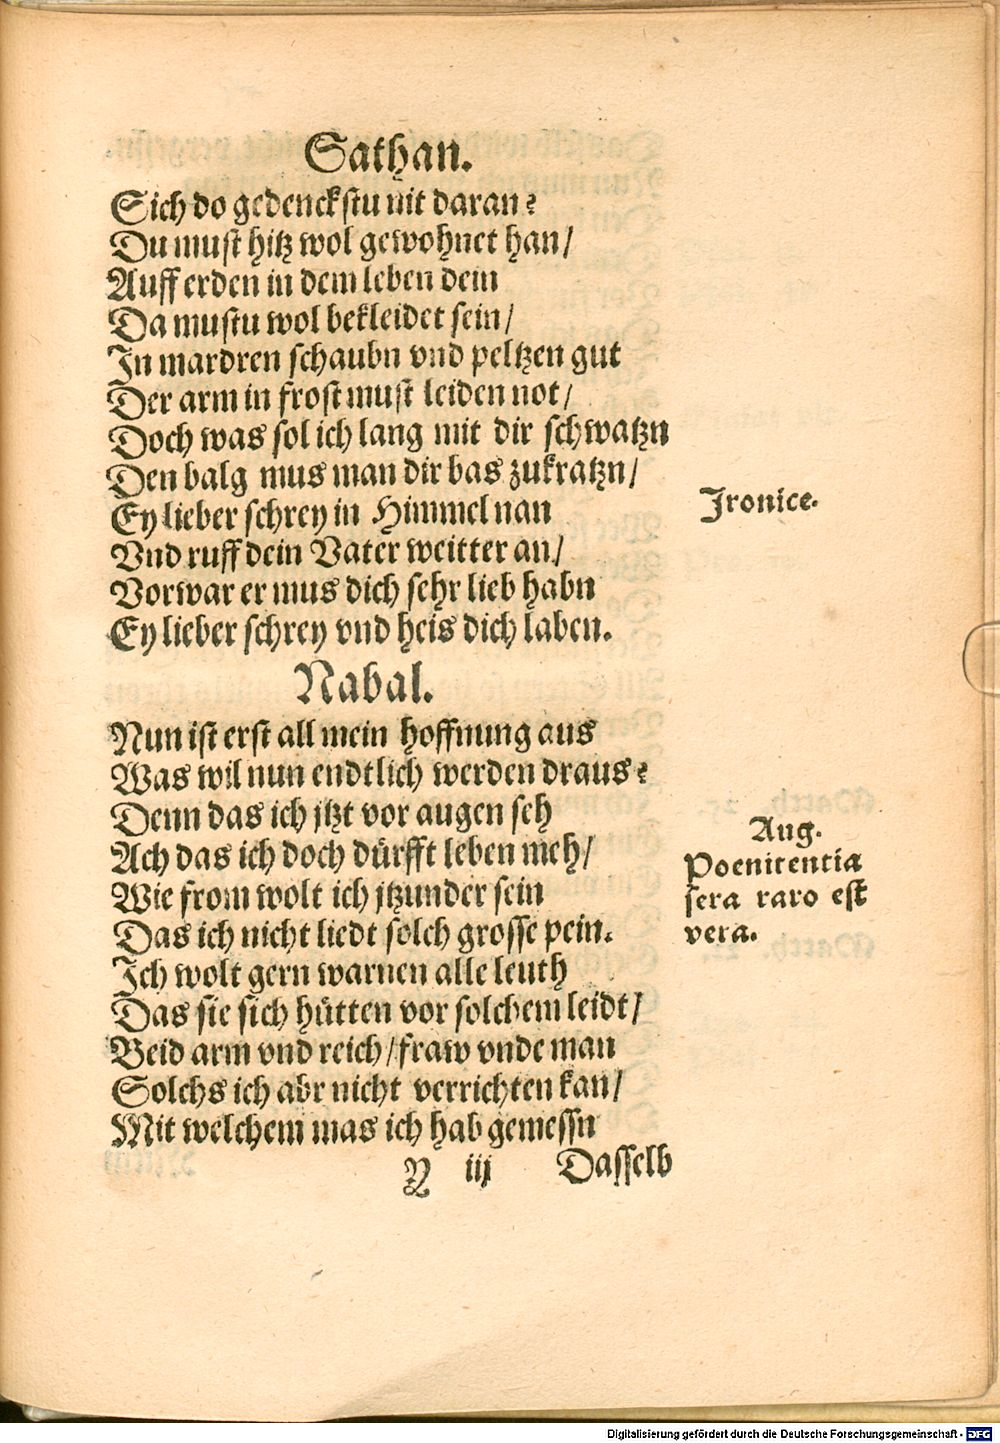 Sathan.
Sich do gedenckstu nit daran?
Du must hitz wol gewohnet han/
Auff erden in dem leben dein
Da mustu wol bekleidet sein/
In mardren schaubn vnd peltzen gut
Der arm in frost must leiden not/
Doch was sol ich lang mit dir schwatzn
Den balg mus man dir bas zukratzn/
Ey lieber schrey in Himmel nan
Vnd ruff dein Vater weitter an/
Vorwar er mus dich sehr lieb habn
Ey lieber schrey vnd heis dich laben.
Ironice.
Nabal.
Nun ist erst all mein hoffnung aus
Was wil nun endtlich werden draus?
Denn das ich jtzt vor augen seh
Ach das ich doch dürfft leben meh/
Wie from wolt ich jtzunder sein
Das ich nicht liedt solch grosse pein.
Ich wolt gern warnen alle leuth
Das sie sich hütten vor solchem leidt/
Beid arm vnd reich/fraw vnde man
Solchs ich abr nicht verrichten kan/
Mit welchem mas ich hab gemessn
Aug.
Poenitentia
sera raro est
vera.
Y iij Dasselb
Digitalisierung gefördert durch die Deutsche Forschungsgemeinschaft - DFG